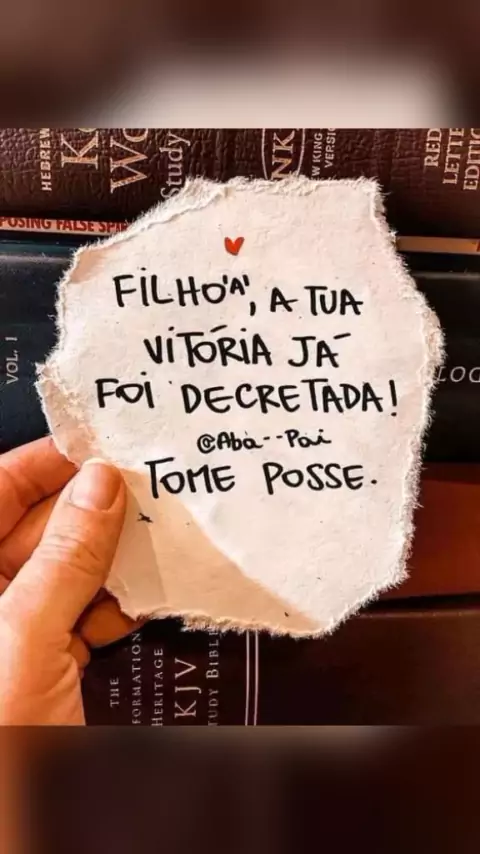 HEBREW
WO
Study
NK
W KING
VERSI
RED
LETTE
EDITI
POSING FALSE SPI
VOL. 1
LOG
FILHO'A', A TUA
VITÓRIA JÁ
FOI DECRETADA!
@Abà--Pai
TOME POSSE.
THE
FORMATION
HERITAGE
KJV
TUDY BIBLE